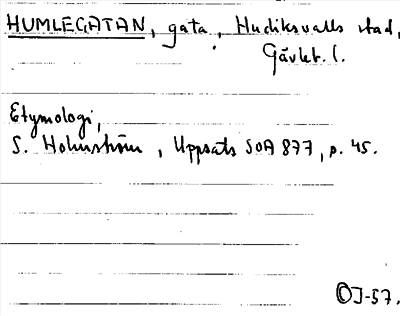 HUMLEGATAN, gata, Hudiksvalls stad,
Gävleb. l.
Etymologi,
S. Holmström, Uppsats SOA 877, p. 45.
OJ-57.